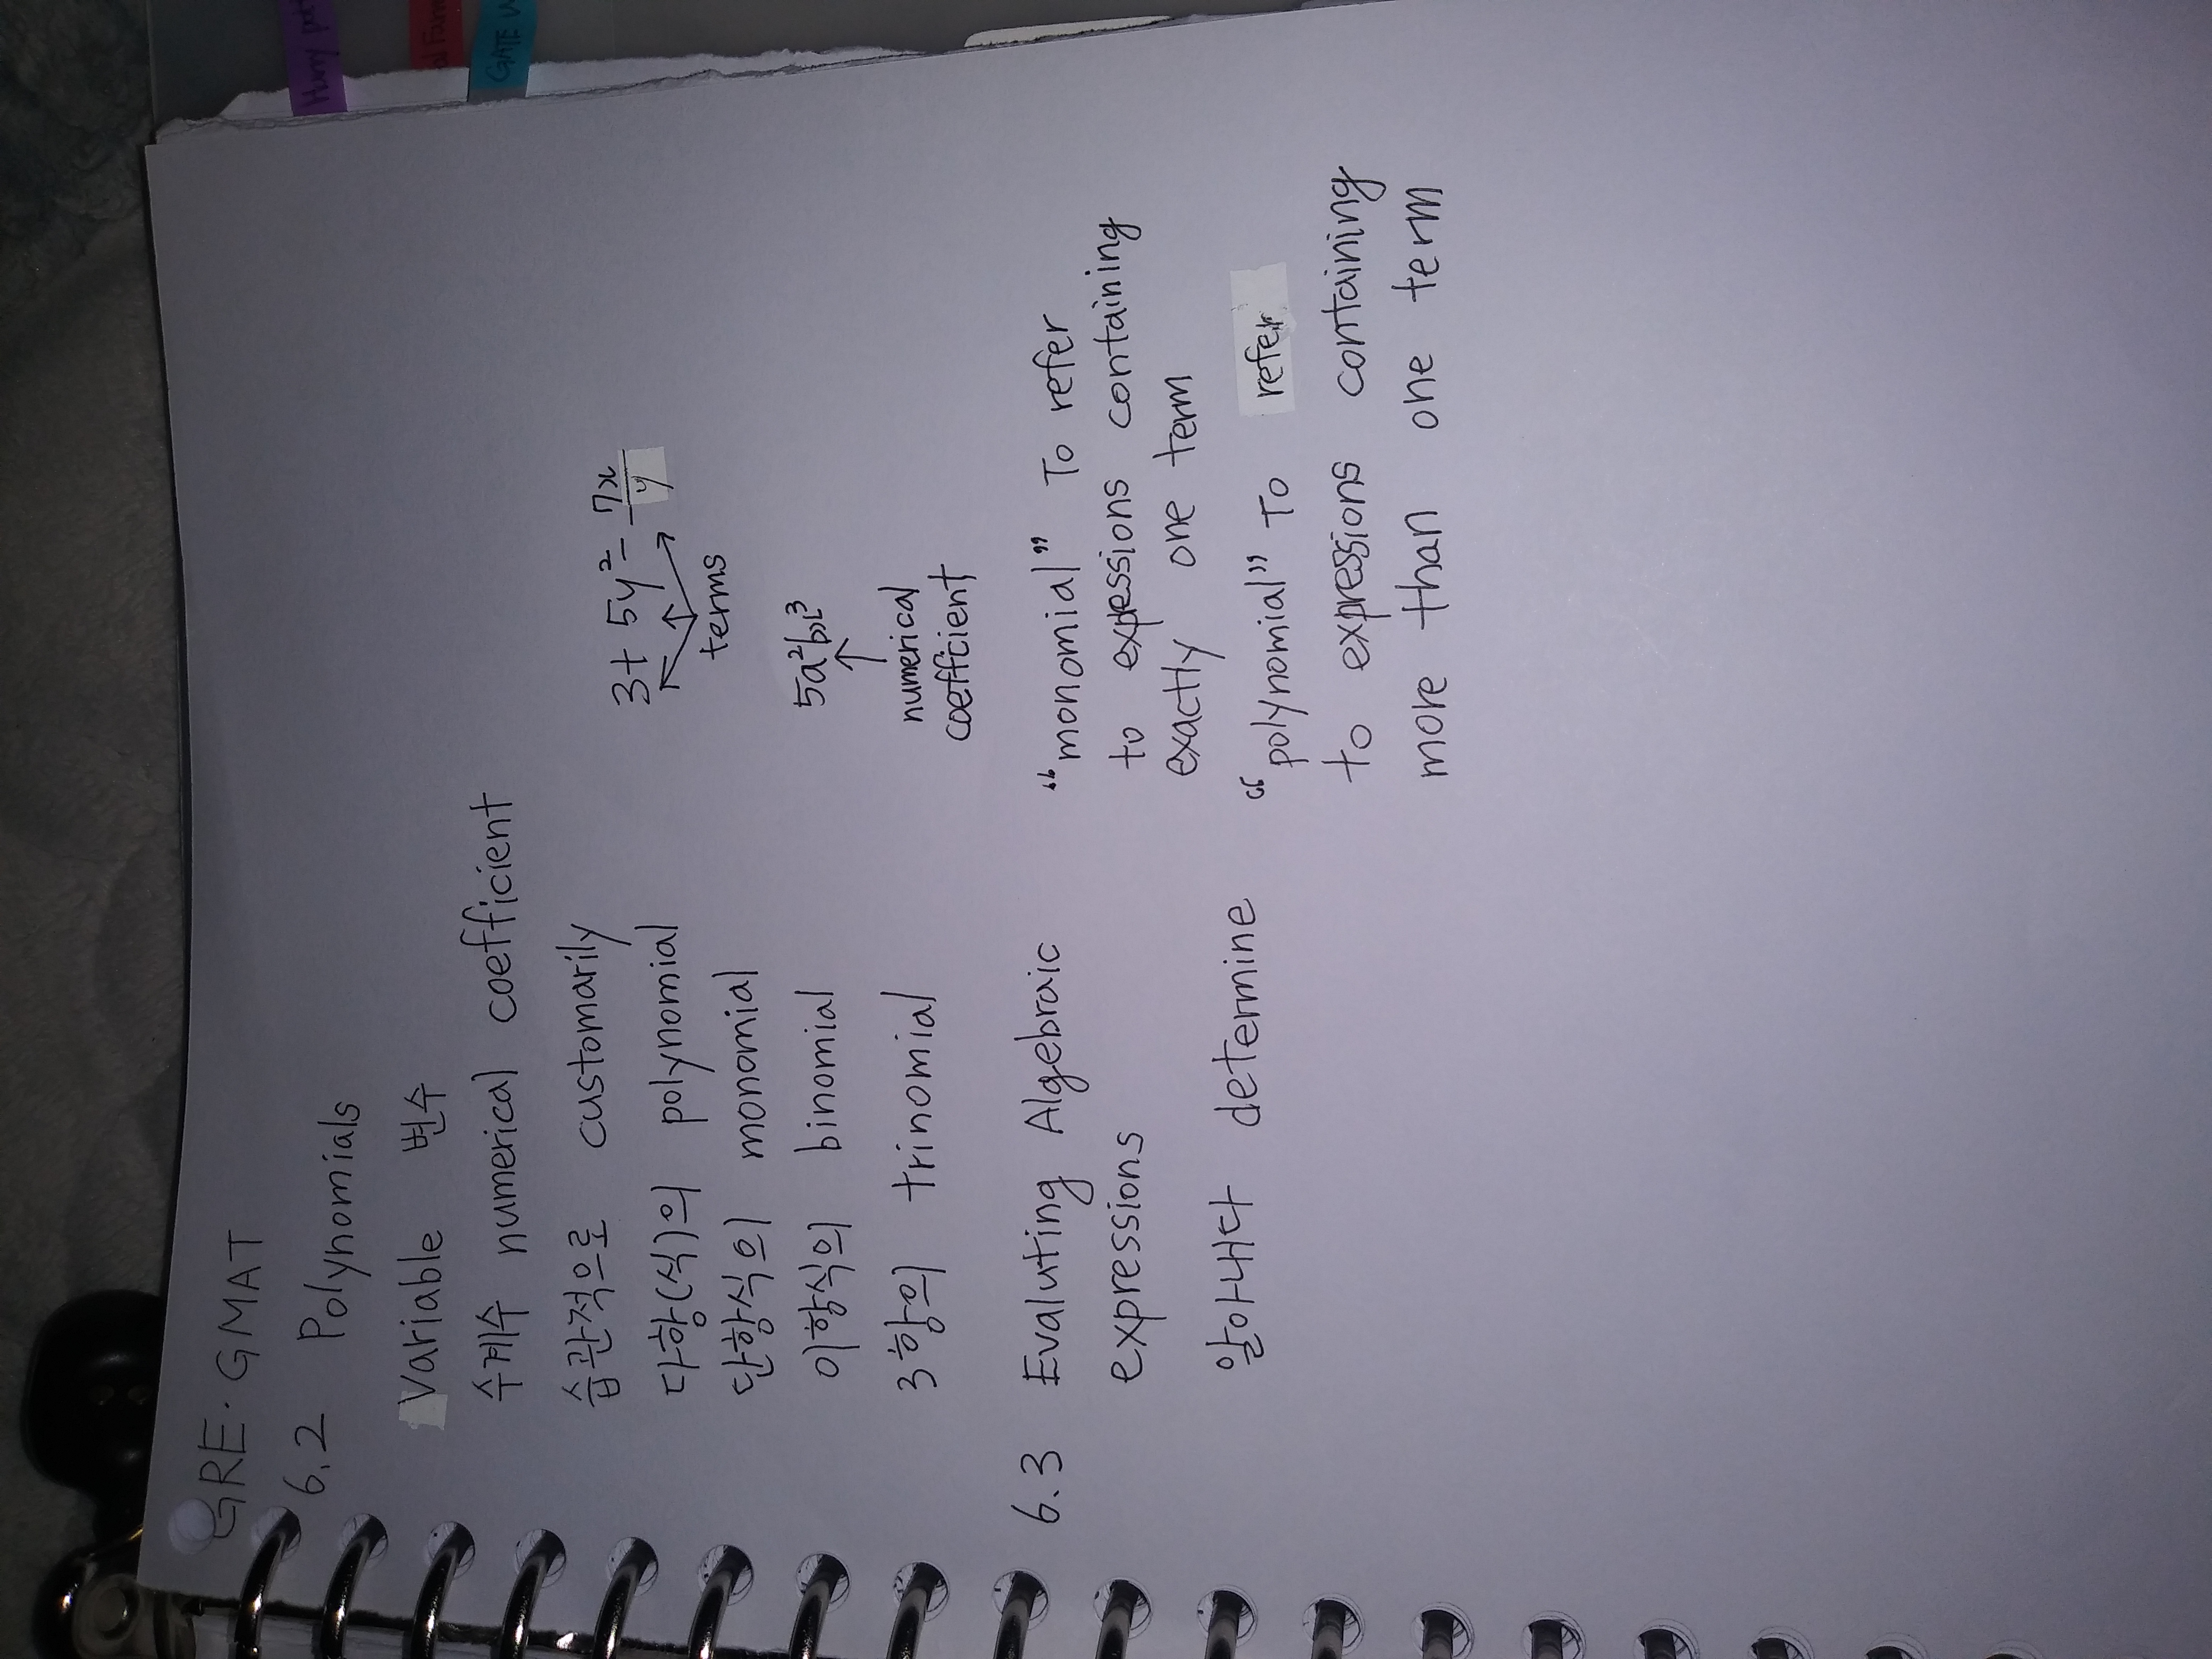 GRE·GMAT
6.2 Polynomials
Variable 변수
수계수 numerical coefficient
습관적으로 customarily
다항(식)의 polynomial
단항식의 monomial
이항식의 binomial
3항의 trinomial
3+5y²-7x/y
terms
numerical
coefficient
6.3 Evaluting Algebraic
expressions
알아내다 determine
"monomial" To refer
to expressions containing
exactly one term
"polynomial" To refer
to expressions containing
more than one term